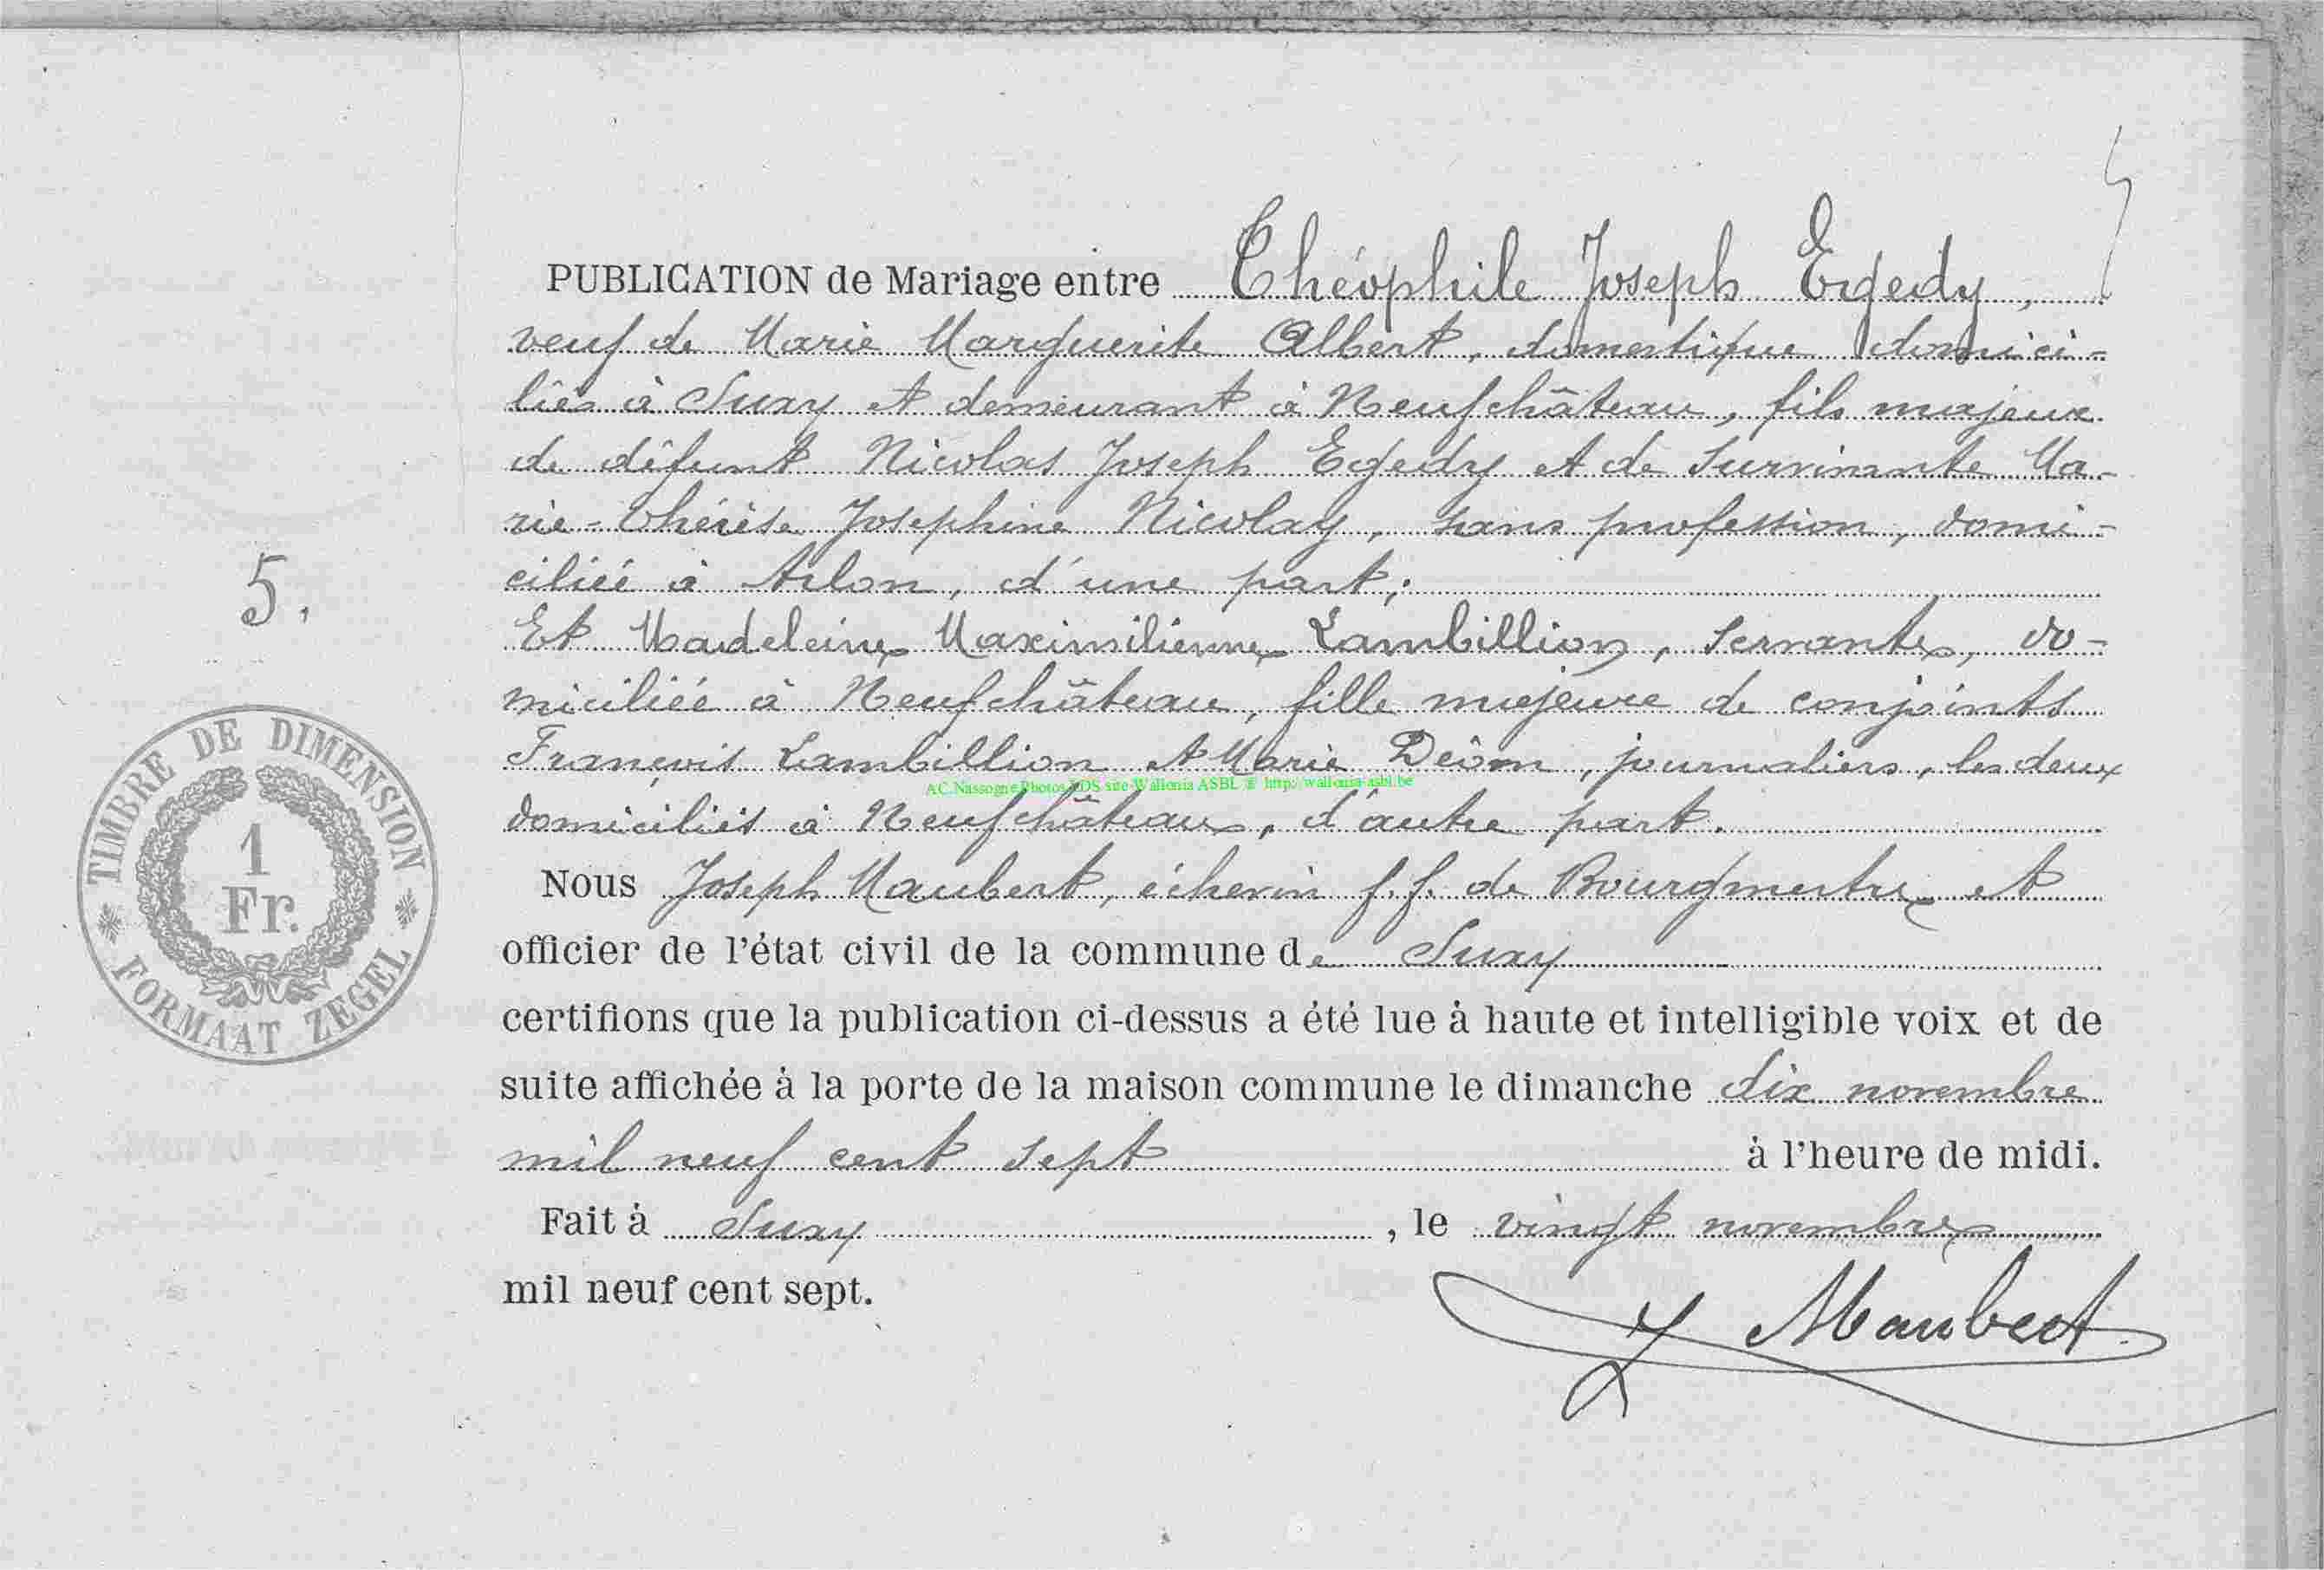 PUBLICATION de Mariage entre Théophile Joseph Egedy,
veuf de Marie Marguerite Albert, domestique domici-
liés à Suxy et demeurant à Neufchâteau, fils majeur
de défunt Nicolas Joseph Egedy et de survivante Ma-
rie-Thérèse Josephine Nicolay, sans profession, domi-
ciliée à Arlon, d'une part;
5.
Et Madeleine Maximilienne Lambillion, servante, do-
miciliée à Neufchâteau, fille majeure de conjoints
François Lambillion et Marie Déom, journaliers, les deux
AC Nassogne Photos SDS site Wallonia ASBL © http://wallonia-asbl.be
domiciliés à Neufchâteau, d'autre part.
TIMBRE DE DIMENSION
1
Fr.
FORMAAT ZEGEL
Nous Joseph Maubert, échevin f.f. de Bourgmestre et
officier de l'état civil de la commune de Suxy
certifions que la publication ci-dessus a été lue à haute et intelligible voix et de
suite affichée à la porte de la maison commune le dimanche dix novembre
mil neuf cent sept à l'heure de midi.
Fait à Suxy, le vingt novembre
mil neuf cent sept.
J Maubert